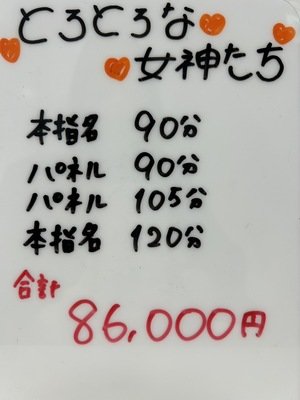 とろとろな
女神たち
本指名 90分
パネル 90分
パネル 105分
本指名 120分
合計
86,000円